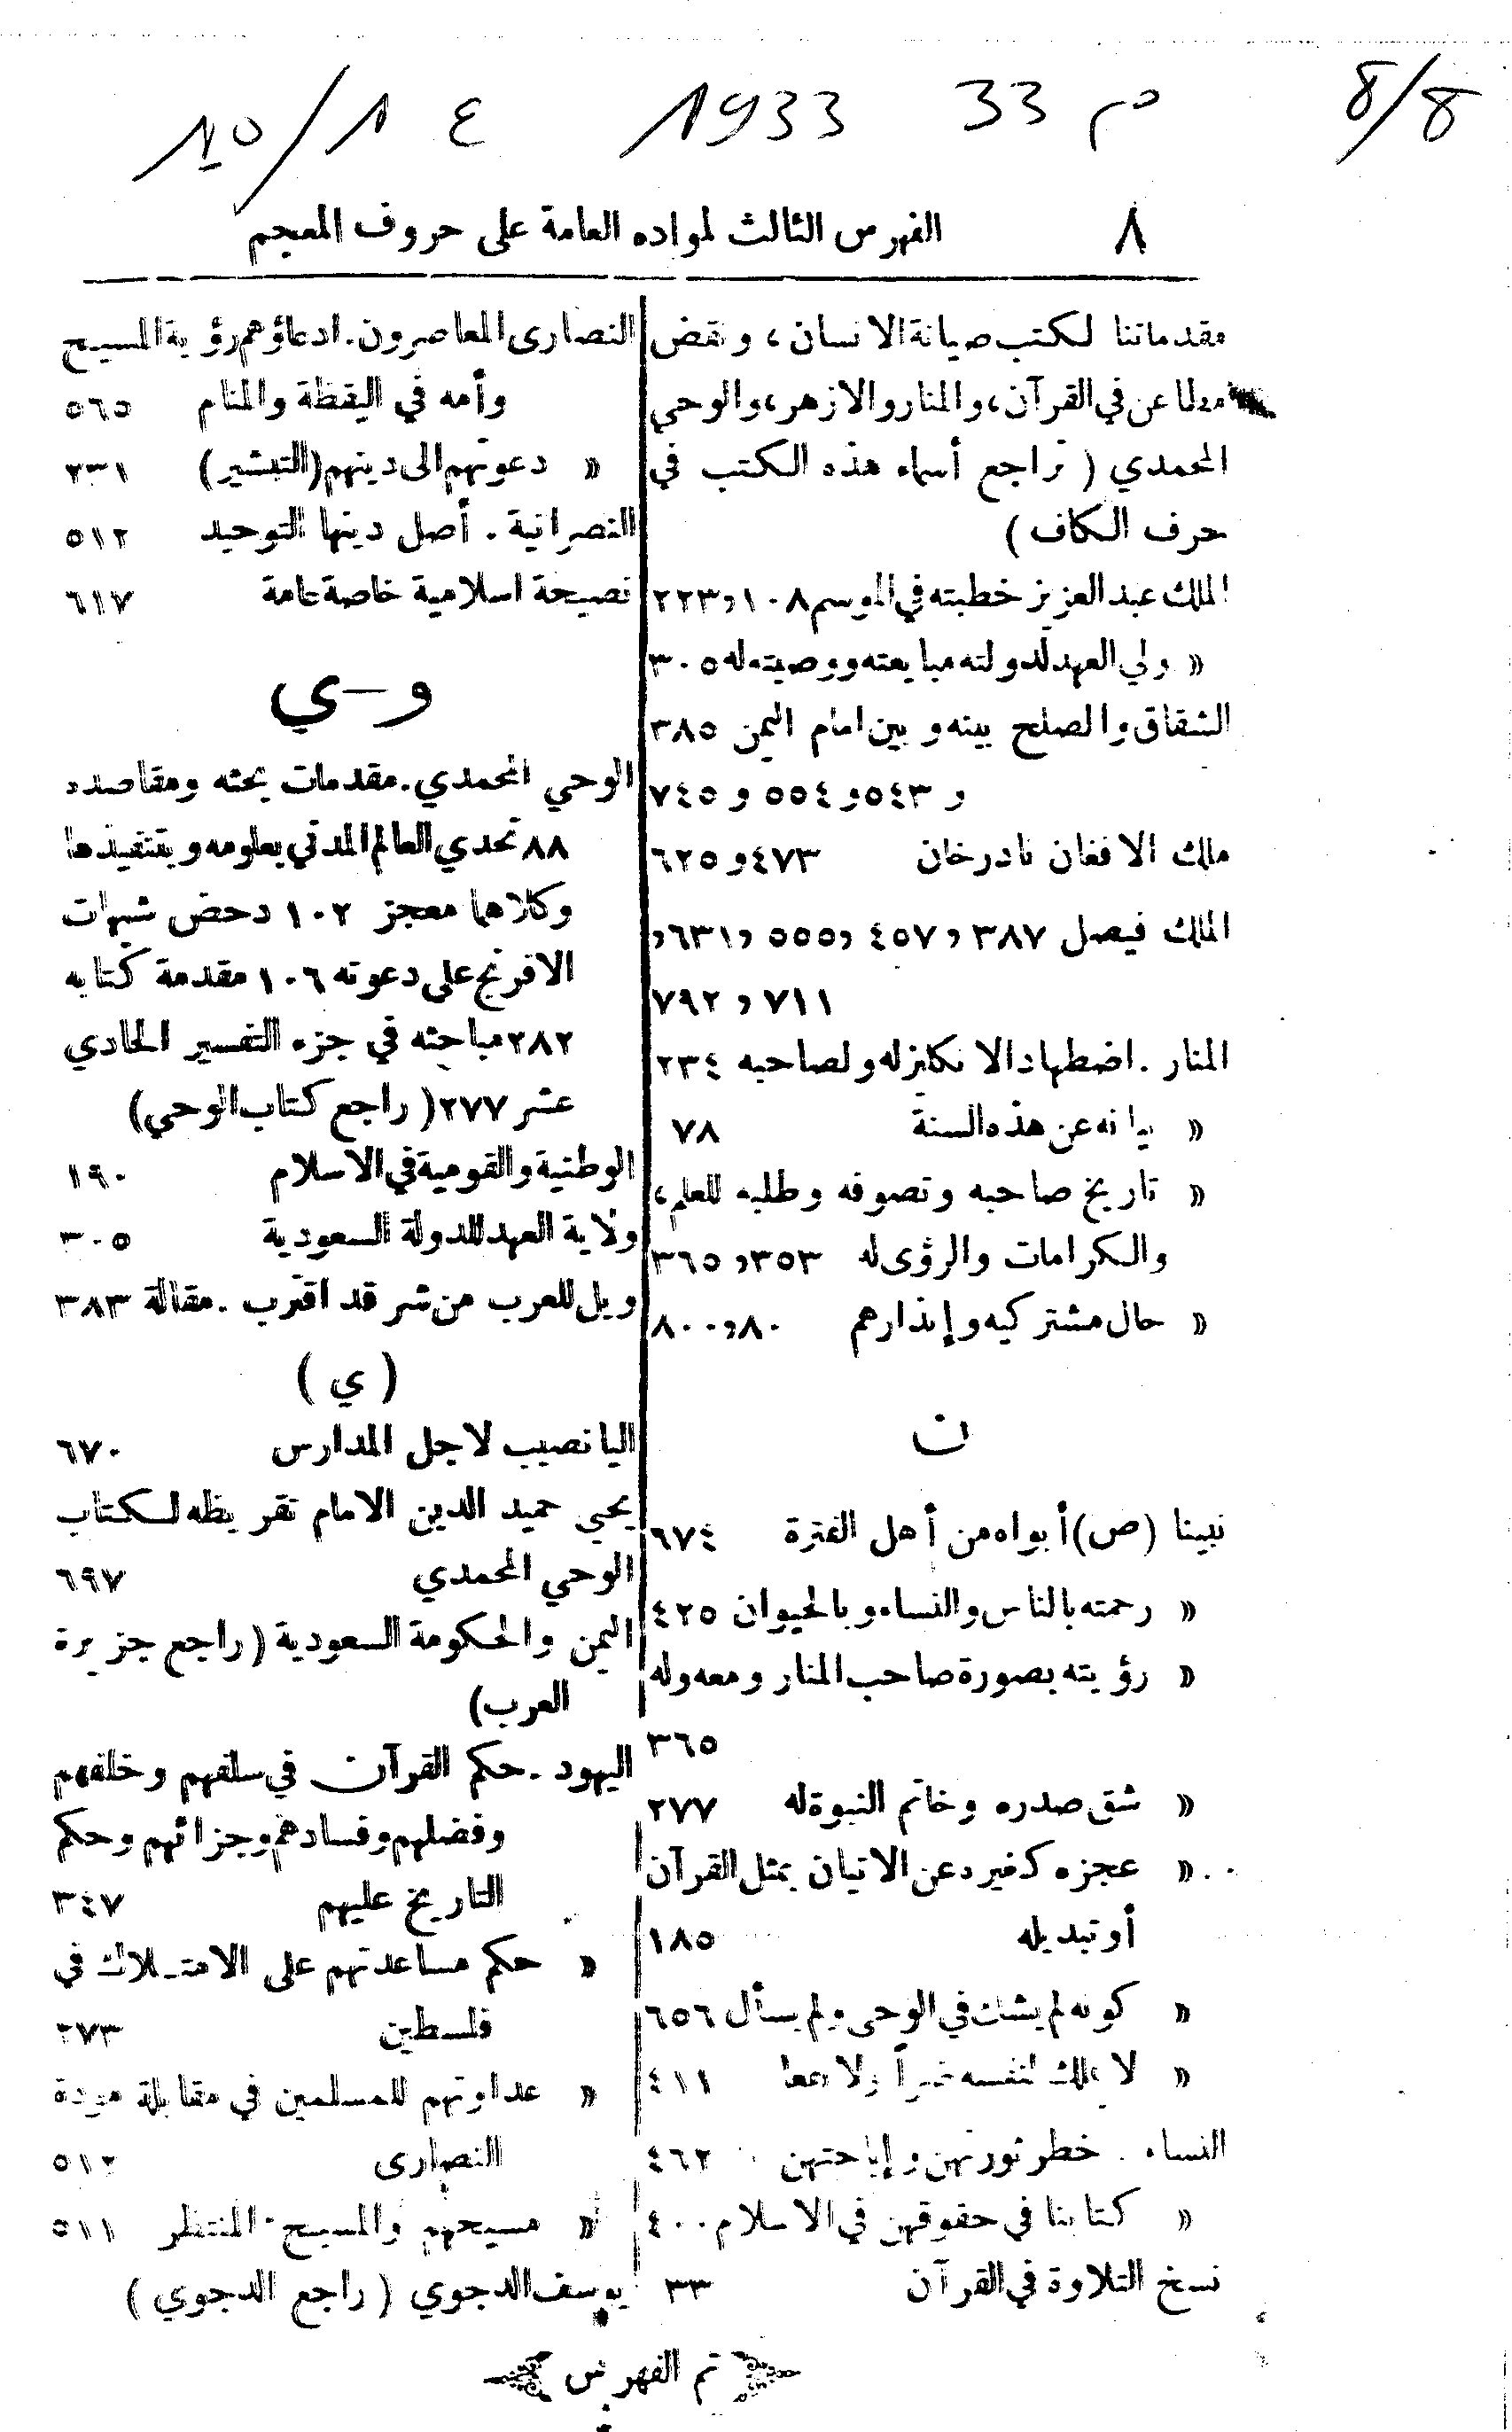 8/8
م 33
1933
ع 1/10
٨
الفهرس الثالث لمواده العامة على حروف المعجم
مقدماتنا لكتب صيانة الانسان، ونقض
مطاعن في القرآن، والمنار والازهر، والوحي
المحمدي ( تراجع أسماء هذه الكتب في
حرف الكاف )
الملك عبد العزيز خطبته في الموسم ١٠٨ و٢٢٣
« ولي العهد لدولته مبايعته ووصيته له ٣٠٥
الشقاق والصلح بينه وبين امام اليمن ٣٨٥
و ٥٤٣ و ٥٥٤ و ٧٤٥
ملك الافغان نادر خان ٤٧٣ و ٦٢٥
الملك فيصل ٣٨٧ و ٤٥٧ و٥٥٥ و٦٣١ و
٧١١ و ٧٩٢
المنار . اضطهاد الانكليز له ولصاحبه ٢٣٤
« بيانه عن هذه السنة ٧٨
« تاريخ صاحبه وتصوفه وطلبه للعلم،
والكرامات والرؤى له ٣٥٣ و٣٦٥
« حال مشتركيه وإنذارهم ٨٠ و٨٠٠
ن
نبينا (ص) أبواه من أهل الفترة ٦٧٤
« رحمته بالناس والنساء وبالحيوان ٤٢٥
« رؤيته بصورة صاحب المنار ومعه وله
٣٦٥
« شق صدره وخاتم النبوة له ٢٧٧
« عجزه كغيره عن الاتيان بمثل القرآن
أو تبديله ١٨٥
« كونه لم يشك في الوحي ولم يسأل ٦٥٦
« لا يملك لنفسه ولا ٤١١
النساء . خطر ثورتهن وإباحتهن ٤٦٢
« كتابنا في حقوقهن في الاسلام ٤٠٠
نسخ التلاوة في القرآن ٣٣
النصارى المعاصرون. ادعاؤهم رؤية المسيح
وأمه في اليقظة والمنام ٥٦٥
« دعوتهم الى دينهم (التبشير) ٢٣١
النصرانية . أصل دينها التوحيد ٥١٢
نصيحة اسلامية خاصة عامة ٦١٧
و-ي
الوحي المحمدي. مقدمات بحثه ومقاصده
٨٨ تحدي العالم المدني بعلومه وبتنفيذها
وكلاهما معجز ١٠٢ دحض شبهات
الافرنج على دعوته ١٠٦ مقدمة كتابه
٢٨٢ مباحثه في جزء التفسير الحادي
عشر ٢٧٧ ( راجع كتاب الوحي)
الوطنية والقومية في الاسلام ١٩٠
ولاية العهد للدولة السعودية ٣٠٥
ويل للعرب من شر قد اقترب . مقالة ٣٨٣
( ي )
اليانصيب لاجل المدارس ٦٧٠
يحيى حميد الدين الامام تقريظه لكتاب
الوحي المحمدي ٦٩٧
اليمن والحكومة السعودية ( راجع جزيرة
العرب)
اليهود . حكم القرآن في سلفهم وخلفهم
وفضلهم وفسادهم وجزائهم وحكم
التاريخ عليهم ٣٤٧
« حكم مساعدتهم على الامتلاك في
فلسطين ٢٧٣
« عداوتهم للمسلمين في مقابلة مودة
النصارى ٥١٢
« مسيحهم والمسيح المنتظر ٥١١
يوسف الدجوي ( راجع الدجوي )
تم الفهرس